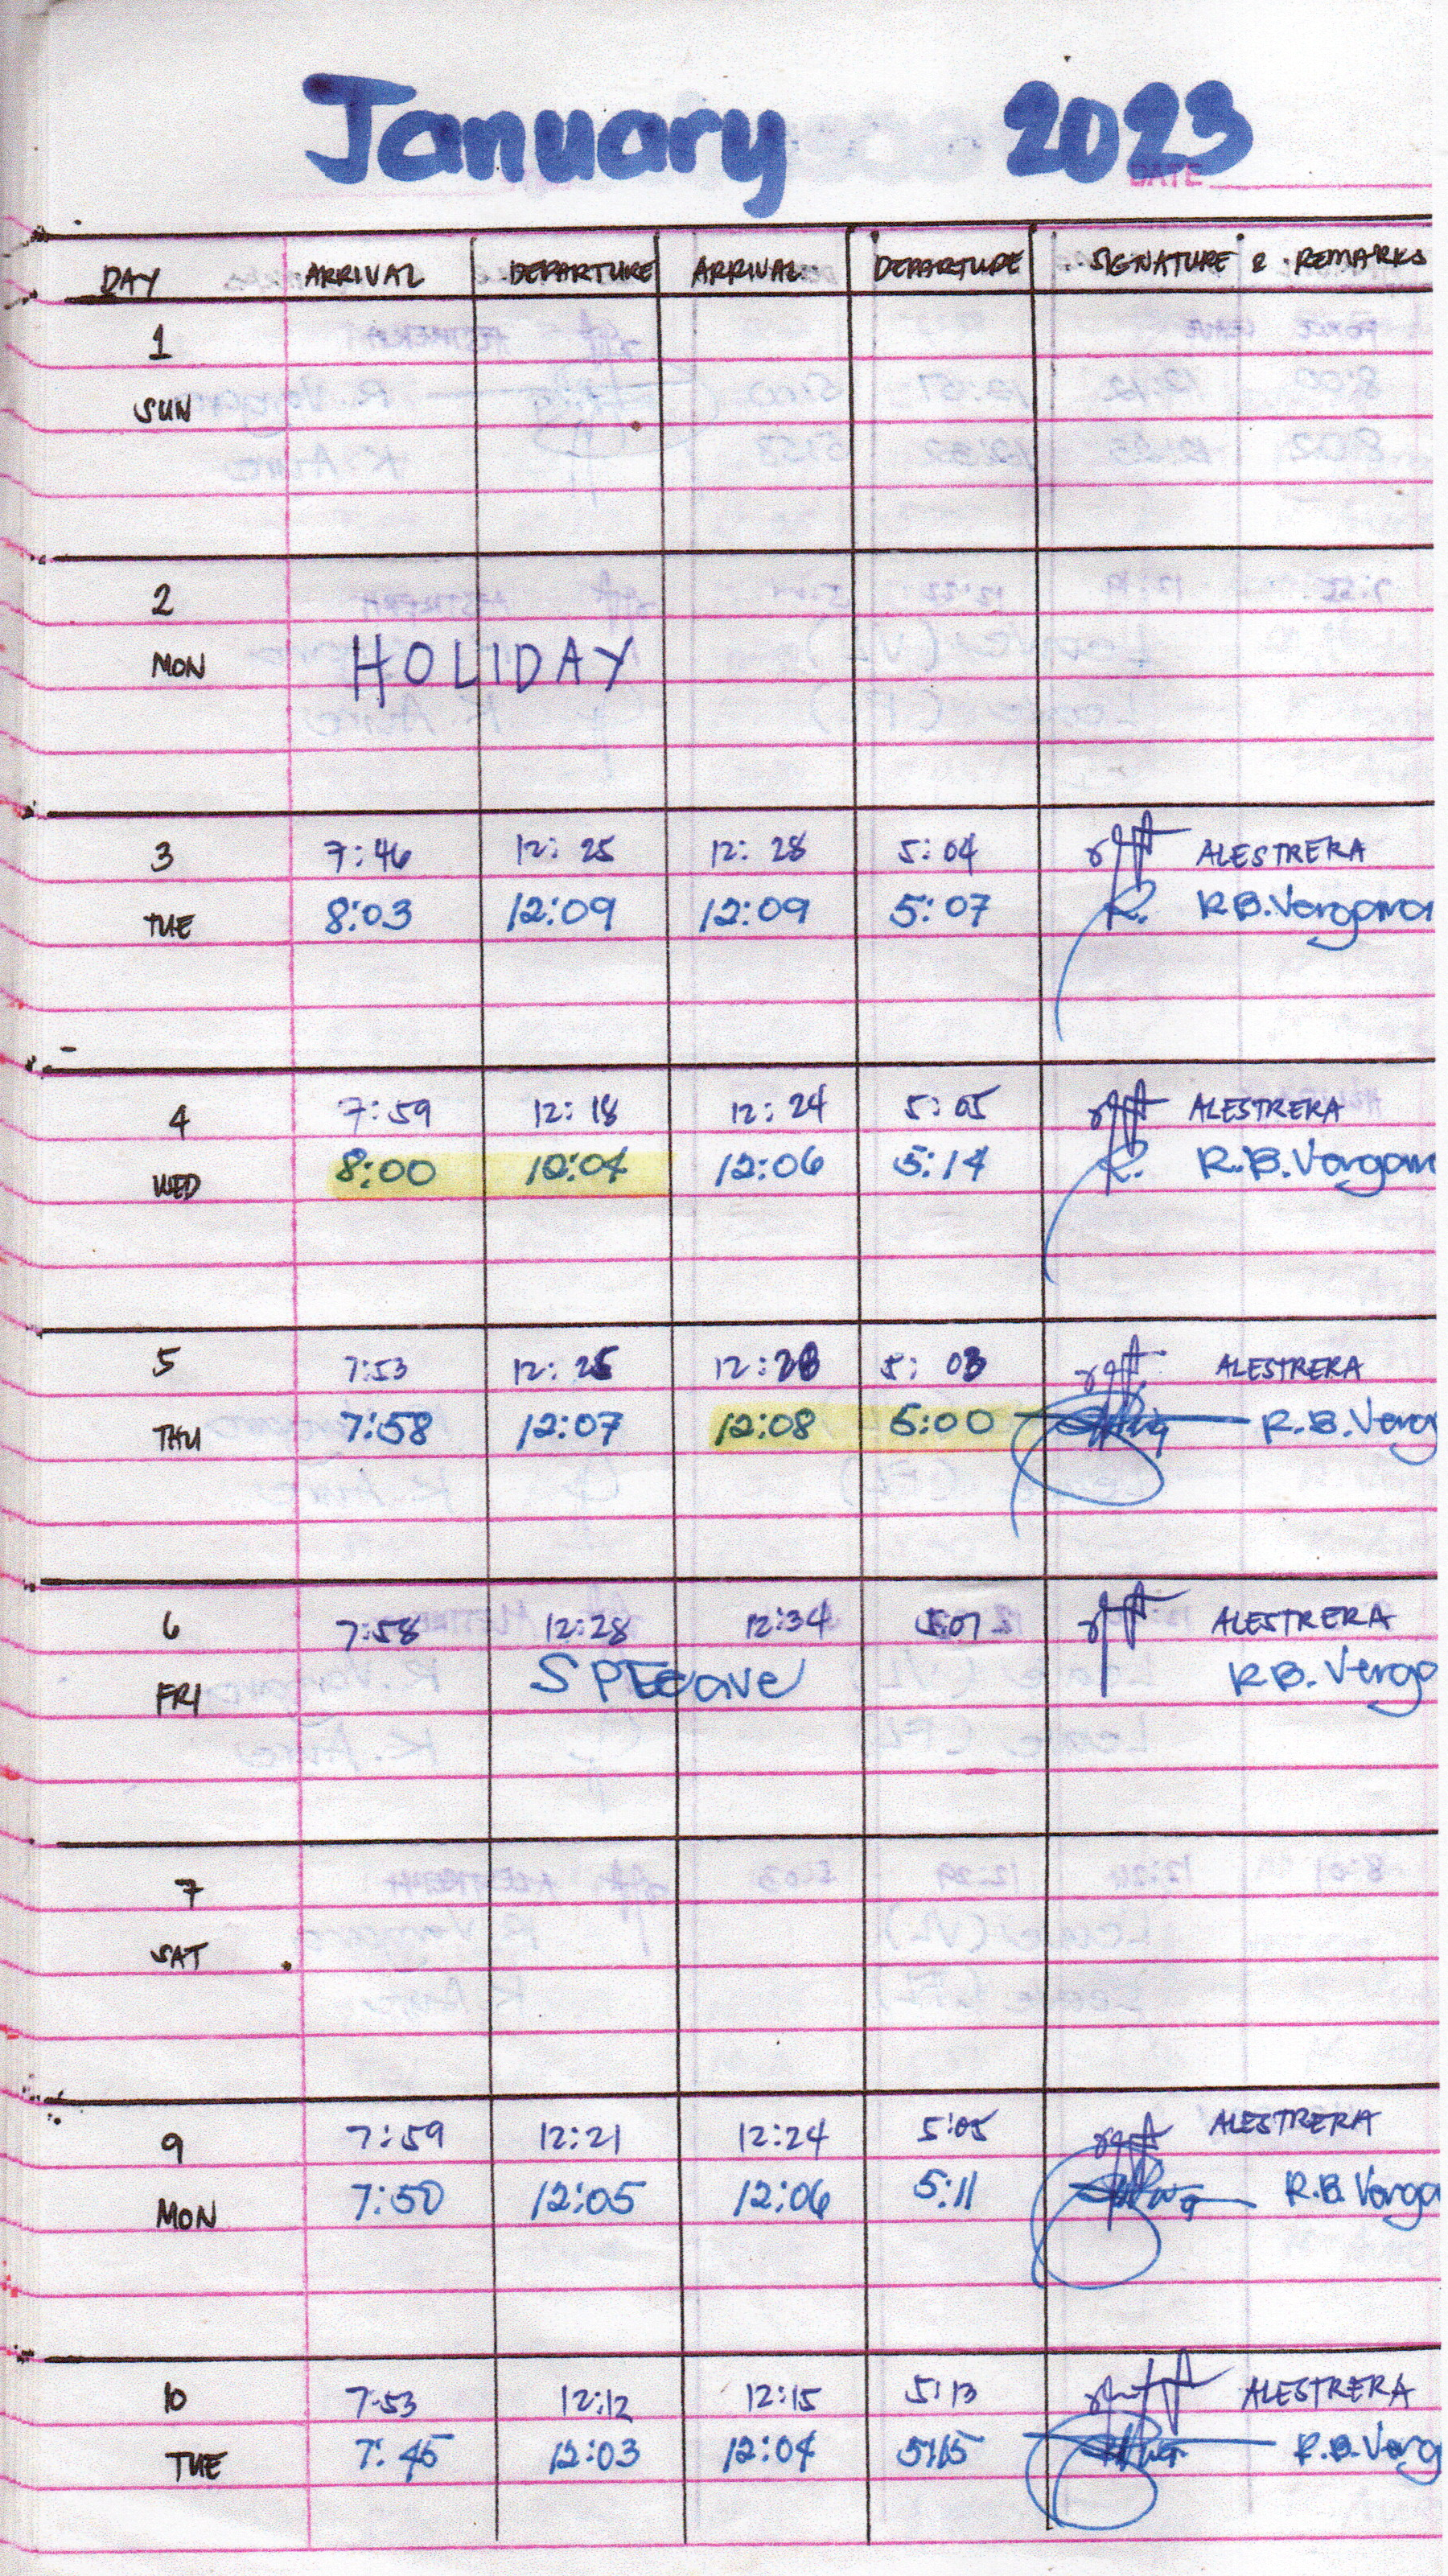 January 2023
DATE
DAY ARRIVAL DEPARTURE ARRIVAL DEPARTURE SIGNATURE & REMARKS
1
SUN
2
MON HOLIDAY
3 7:46 12:25 12:28 5:04 ALESTRERA
TUE 8:03 12:09 12:09 5:07 R. R.B.Vergara
4 7:59 12:18 12:24 5:05 ALESTRERA
WED 8:00 12:04 12:06 5:14 R. R.B.Vergam
5 7:53 12:25 12:28 5:03 ALESTRERA
THU 7:58 12:07 12:08 5:00 R.B.Verg
6 7:58 12:28 12:34 5:07 ALESTRERA
FRI SPLeave R.B.Verga
7
SAT
9 7:59 12:21 12:24 5:05 ALESTRERA
MON 7:50 12:05 12:06 5:11 R.B.Verga
10 7:53 12:12 12:15 5:13 ALESTRERA
TUE 7:45 12:03 12:04 5:15 R.B.Verg